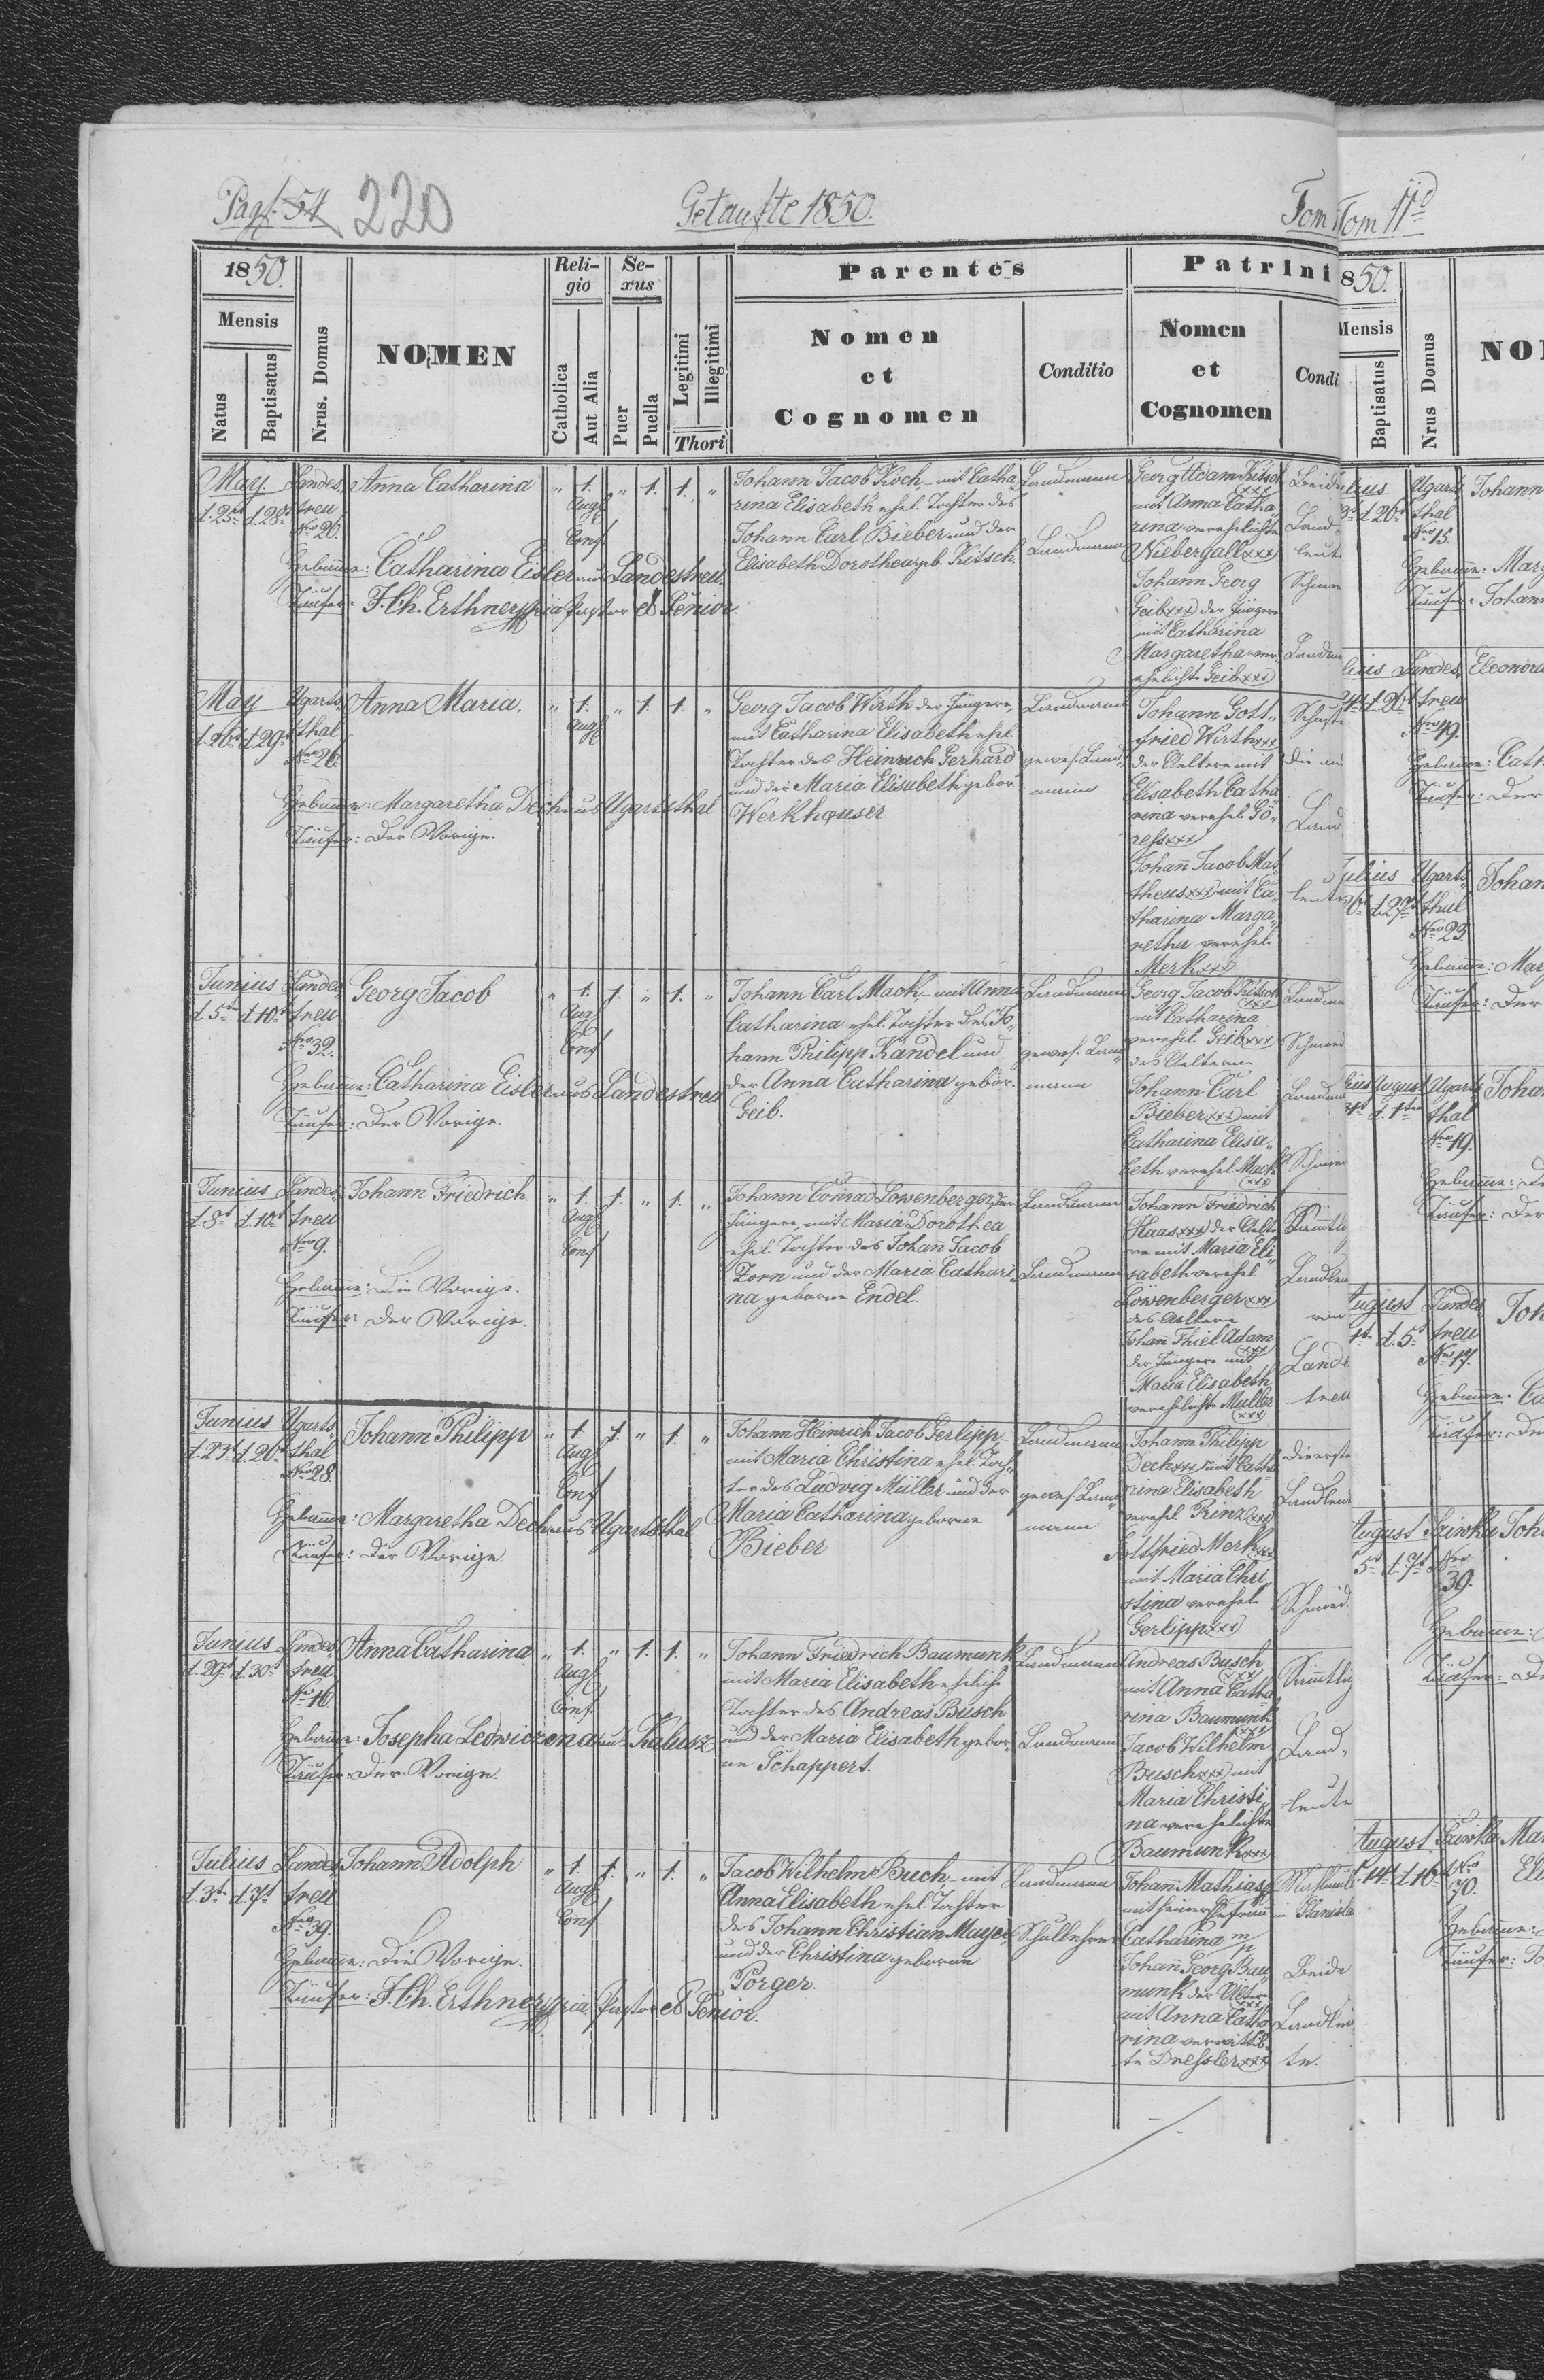 Pag. 54 220
Getaufte 1850.
Tom
1850.
Mensis
Natus
Baptisatus
Nrus. Domus
NOMEN
Reli-
gio
Catholica
Aut Alia
Se-
xus
Puer
Puella
Legitimi
Illegitimi
Thori
Parentes
Nomen
et
Cognomen
Conditio
Patrini
Nomen
et
Cognomen
Condi
May
d. 25t d. 28t
Landes„
treu
Nro 20.
Anna Catharina
„ 1. „ 1. 1. „
Augs
Conf
Johann Jacob Koch mit Catha„
rina Elisabeth ehel. Tochter des
Johann Carl Bieber und der
Elisabeth Dorothea geb. Kitsch.
Landmann
Landmann
Georg Adam Kitsch
xxx
mit Anna Catha„
rina verehelichte
Wiebergall xxx
Johann Georg
Geib xxx der Jüngere
mit Catharina
Margaretha ver„
ehelichte Geib xxx
Beide
Land„
leute
Hebamme: Catharina Eisler aus Landestreu.
Täufer: J. Ch. Erthner Pastor et Senior.
May
d. 26t d. 29t
Ugarts„
thal
Nro 26.
Anna Maria.
„ 1. „ 1. 1. „
Augs
Georg Jacob Wirth der Jüngere,
mit Catharina Elisabeth ehel.
Tochter des Heinrich Gerhard
und der Maria Elisabeth gebor.
Werkhauser
Landmann
gewes. Land„
mann
Johann Gott„
fried Wirth xxx
der Aeltere mit
Elisabeth Catha„
rina verehel. Gö„
ress xxx
Johann Jacob Mat„
theus xxx mit Ca„
tharina Marga„
retha verehel.
Merk xxx
Land
leute
Hebamme: Margaretha Dech aus Ugartsthal
Täufer: Der Vorige.
Junius
d. 5ten d. 10t
Landes„
treu
Nro 32.
Georg Jacob
„ 1. 1. „ 1. „
Augs
Conf
Johann Carl Mack mit Anna
Catharina ehel. Tochter des Jo„
hann Philipp Kandel und
der Anna Catharina gebor.
Geib.
Landmann
gewes. Land„
mann
Georg Jacob Kitsch
xxx
mit Catharina
verehel. Geib xxx
des Aelteren
Johann Carl
Bieber xxx mit
Catharina Elisa„
beth verehel. Mack
xxx
Hebamme: Catharina Eisler aus Landestreu
Täufer: Der Vorige.
Junius
d. 8t d. 10t
Landes„
treu
Nro 9.
Johann Friedrich
„ 1. 1. „ 1. „
Augs
Conf
Johann Conrad Lowenberger, der
Jüngere, mit Maria Dorothea
ehel. Tochter des Johann Jacob
Zorn und der Maria Cathari„
na geborne Endel.
Landmann
Landmann
Johann Friedrich
Haas xxx der Aelte„
re mit Maria Eli„
sabeth verehel.
Löwenberger xxx
des Aeltere
Johann Thiel Adam
xxx
der Jüngere mit
Maria Elisabeth
verehelichte Müller
xxx
Sämtlich
Landleu
Lande
treu
Hebamme: Die Vorige.
Täufer: Der Vorige.
Junius
d. 23t d. 26t
Ugarts„
thal
Nro 28.
Johann Philipp
„ 1. 1. „ 1. „
Augs
Conf
Johann Heinrich Jacob Gerlipp
mit Maria Christina ehel. Toch„
ter des Ludwig Müller und der
Maria Catharina geborne
Bieber
Landmann
gewes. Land„
mann
Johann Philipp
Dech xxx mit Catha„
rina Elisabeth
verehel Prinz xxx
Gottfried Merk xxx
mit Maria Chri„
stina verehel.
Gerlipp xxx
die erste
Landleut
Schmied.
Hebamme: Margaretha Dech aus Ugartsthal
Täufer: Der Vorige.
Junius
d. 29t d. 30t
Landes„
treu
Nro 16.
Anna Catharina
„ 1. „ 1. 1. „
Augs
Conf
Johann Friedrich Baumunk
mit Maria Elisabeth ehelich
Tochter des Andreas Busch
und der Maria Elisabeth gebor„
ne Schappert.
Landmann
Landmann
Andreas Busch
xxx
mit Anna Catha„
rina Baumunk
xxx
Jacob Wilhelm
Busch xxx mit
Maria Christi„
na verehelichte
Baumunk xxx
Sämtlich
Land„
leute
Hebamme: Josepha Ledwiczona aus Kalusz
Täufer: Der Vorige.
Julius
d. 3t d. 7t
Landes„
treu
Nro 39.
Johann Adolph
„ 1. 1. „ 1. „
Augs
Conf
Jacob Wilhelm Buch mit
Anna Elisabeth ehel. Tochter
des Johann Christian Mayer
und der Christina geborne
Porger.
Landmann
Schullehrer
Johann Mathias
mit seiner Ehefrau
Catharina m/p
Johann Georg Bau„
munk der Ältere
xxx
mit Anna Catha„
rina verwittib„
te Dressler xxx
Beide
Landleu„
te.
Hebamme: Die Vorige.
Täufer: J. Ch. Erthner Pastor et Senior.
Tom IId
850.
Mensis
Baptisatus
Nrus Domus
NO
d. 20t
Ugarts„
thal
Nro 15.
Johann
Hebamme: Marg
Täufer: Johann
Landes„
treu
Nro 49.
Eleonora
Hebamme: Cath
Täufer: Der
Julius
d. 27t
Ugarts„
thal
Nro 23.
Johan
Hebamme: Mar
Täufer: Der
August
d. 1ten
Ugarts„
thal
Nro 19.
Johan
Täufer: Der
August
d. 5t
Landes„
treu
Nro 17.
Joh
Hebamme: Ca
Täufer: De
August
5t d. 7t
Nro
39.
Joh
Hebamme:
Täufer: De
August
14t d. 16t
Nro
70.
Mar
Eli
Hebamme:
Täufer: Jo